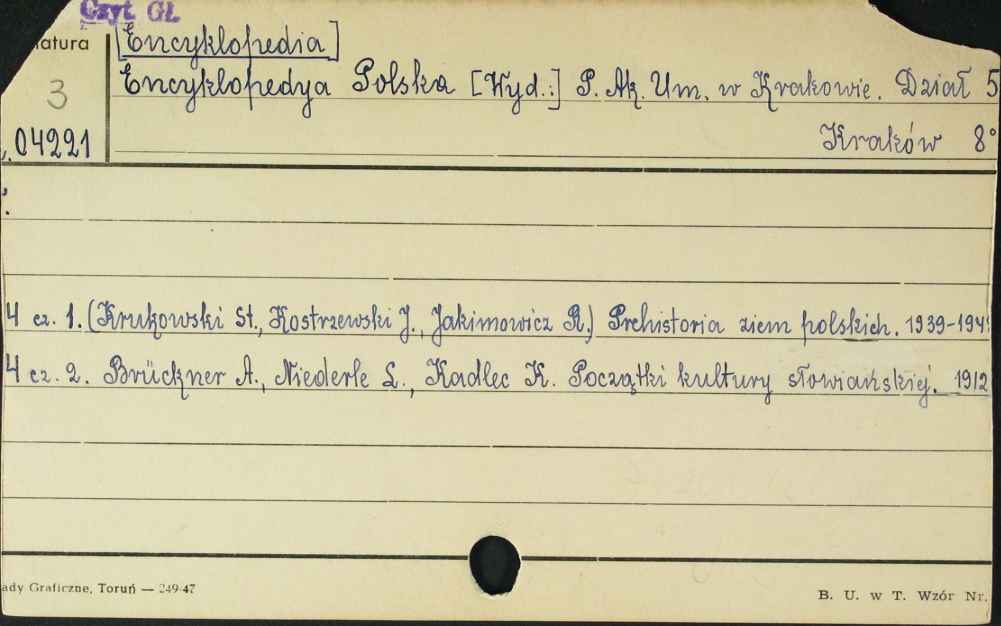 Czyt. Gł.
atura
[Encyklopedia]
3
Encyklopedya Polska [Wyd.:] P. Ak. Um. w Krakowie. Dział 5
04221
Kraków 8°
4 cz. 1. (Krukowski St., Kostrzewski J., Jakimowicz R.) Prehistoria ziem polskich. 1939-194
4 cz. 2. Brückner A., Niederle L., Kadlec K. Początki kultury słowiańskiej. 1912
ady Graficzne, Toruń — 249-47
B. U. w T. Wzór Nr.